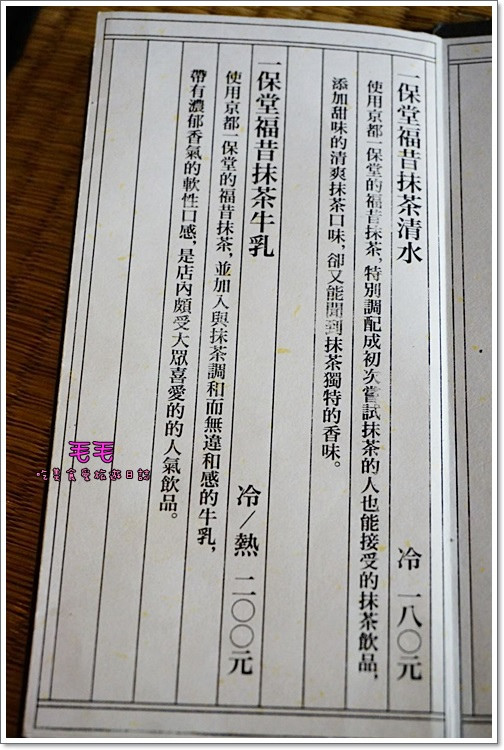 一保堂福昔抹茶清水 冷 一八〇元
使用京都一保堂的福昔抹茶，特別調配成初次嘗試抹茶的人也能接受的抹茶飲品，
添加甜味的清爽抹茶口味，卻又能聞到抹茶獨特的香味。
一保堂福昔抹茶牛乳 冷／熱 二〇〇元
使用京都一保堂的福昔抹茶，並加入與抹茶調和而無違和感的牛乳，
帶有濃郁香氣的軟性口感，是店內頗受大眾喜愛的的人氣飲品。
毛毛
吃喜食愛旅遊日誌